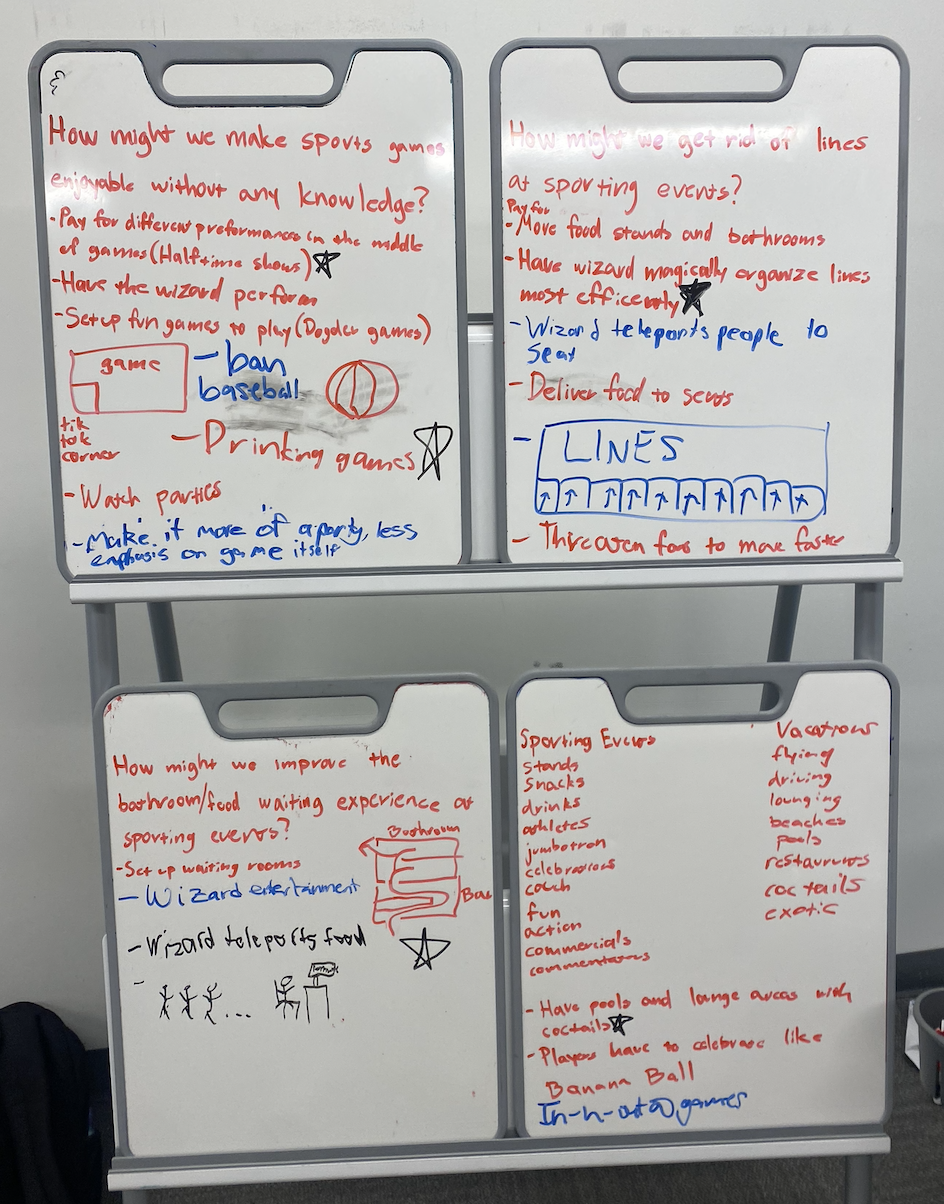 How might we make sports games
enjoyable without any knowledge?
- Pay for different preformances in the middle
of games (Halftime shows)
- Have the wizard perform
- Set up fun games to play (Dogder games)
game
- ban
baseball
tik
tok
corner
- Drinking games
- Watch parties
- Make it more of a party, less
emphasis on game itself
How might we get rid of lines
at sporting events?
Pay for
- Move food stands and bathrooms
- Have wizard magically organize lines
most efficently
- Wizard teleports people to
seat
- Deliver food to seats
- LINES
- Threaten fans to move faster
How might we improve the
bathroom/food waiting experience at
sporting events?
Bathroom
- Set up waiting rooms
- Wizard entertainment
Bar
- Wizard teleports food
-
Sporting Events
stands
snacks
drinks
athletes
jumbotron
celebrations
coach
fun
action
commercials
commentators
Vacations
flying
driving
lounging
beaches
pools
restaurants
coctails
exotic
- Have pools and lounge areas with
coctails
- Players have to celebrate like
Banana Ball
In-n-out @ games